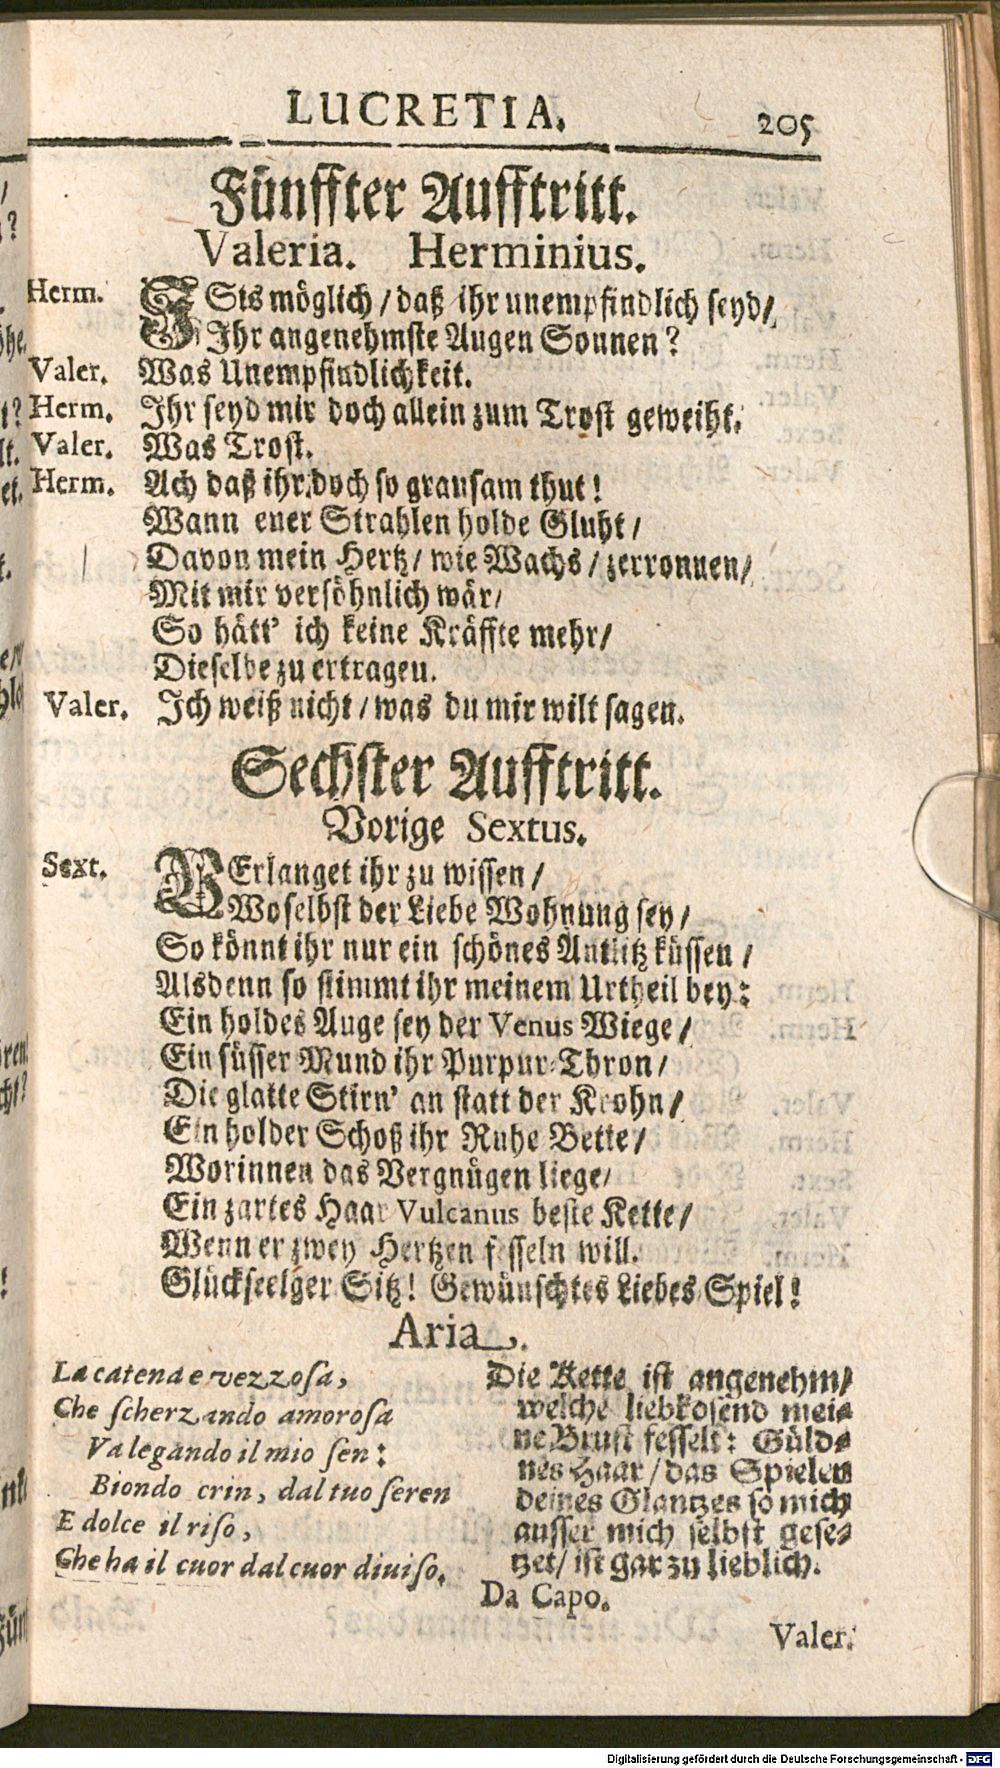 LUCRETIA. 205
Fünffter Aufftritt.
Valeria. Herminius.
Herm. ISts möglich / daß ihr unempfindlich seyd /
Ihr angenehmste Augen Sonnen?
Valer. Was Unempfindlichkeit.
Herm. Ihr seyd mir doch allein zum Trost geweiht.
Valer. Was Trost.
Herm. Ach daß ihr doch so grausam thut!
Wann euer Strahlen holde Gluht /
Davon mein Hertz / wie Wachs / zerronnen /
Mit mir versöhnlich wär /
So hätt' ich keine Kräffte mehr /
Dieselbe zu ertragen.
Valer. Ich weiß nicht / was du mir wilt sagen.
Sechster Aufftritt.
Vorige Sextus.
Sext. VErlanget ihr zu wissen /
Woselbst der Liebe Wohnung sey /
So könnt ihr nur ein schönes Antlitz küssen /
Alsdenn so stimmt ihr meinem Urtheil bey:
Ein holdes Auge sey der Venus Wiege /
Ein süsser Mund ihr Purpur-Thron /
Die glatte Stirn' an statt der Krohn /
Ein holder Schoß ihr Ruhe Bette /
Worinnen das Vergnügen liege /
Ein zartes Haar Vulcanus beste Kette /
Wenn er zwey Hertzen fesseln will.
Glückseelger Sitz! Gewünschtes Liebes Spiel!
Aria.
La catena e vezzosa,
Che scherzando amorosa
Va legando il mio sen:
Biondo crin, dal tuo seren
E dolce il riso,
Che ha il cuor dal cuor diuiso.
Die Kette ist angenehm /
welche liebkosend mei-
ne Brust fesselt: Güld-
nes Haar / das Spielen
deines Glantzes so mich
ausser mich selbst gese-
tzet / ist gar zu lieblich.
Da Capo.
Valer.
Digitalisierung gefördert durch die Deutsche Forschungsgemeinschaft - DFG